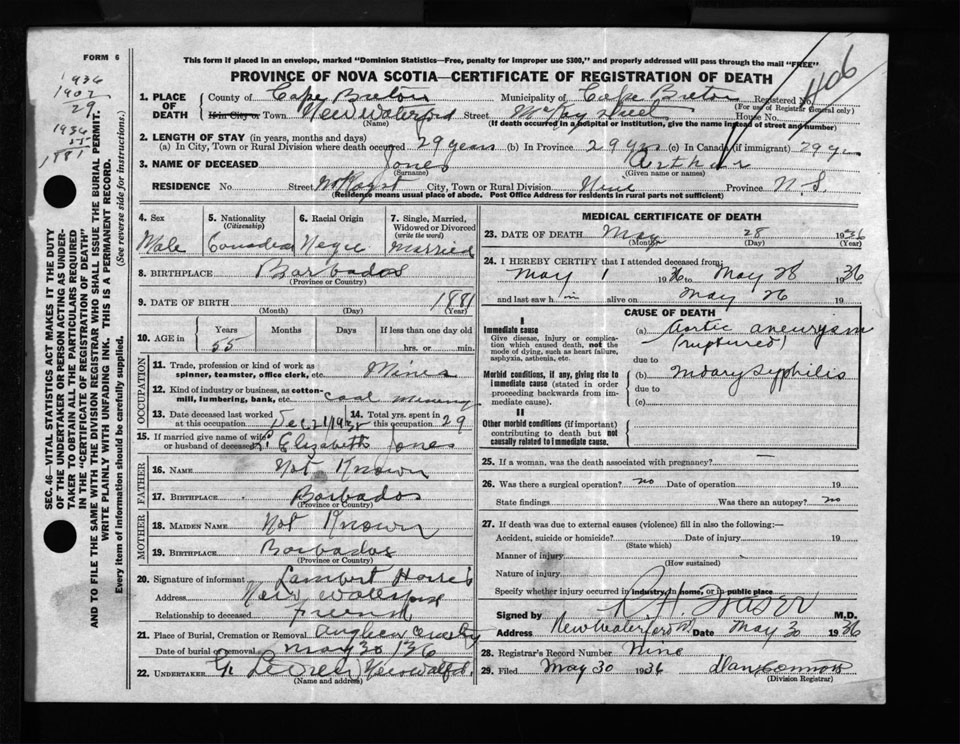 FORM 6
This form if placed in an envelope, marked "Dominion Statistics—Free, penalty for improper use $300," and properly addressed will pass through the mail "FREE"
PROVINCE OF NOVA SCOTIA—CERTIFICATE OF REGISTRATION OF DEATH
406
1936
1907
29
1936
55
1881
SEC. 46—VITAL STATISTICS ACT MAKES IT THE DUTY
OF THE UNDERTAKER OR PERSON ACTING AS UNDER-
TAKER TO OBTAIN ALL THE PARTICULARS REQUIRED
IN THE "CERTIFICATE OF REGISTRATION OF DEATH"
AND TO FILE THE SAME WITH THE DIVISION REGISTRAR WHO SHALL ISSUE THE BURIAL PERMIT.
WRITE PLAINLY WITH UNFADING INK. THIS IS A PERMANENT RECORD.
Every item of information should be carefully supplied. (See reverse side for instructions.)
1. PLACE OF DEATH County of Cape Breton Municipality of Cape Breton Registered No.
(For use of Registrar General only)
In in City or Town New Waterford Street House No.
(Name) (If death occurred in a hospital or institution, give the name instead of street and number)
2. LENGTH OF STAY (in years, months and days)
(a) In City, Town or Rural Division where death occurred 29 years (b) In Province 29 yrs (c) In Canada (if immigrant) 29 yrs
3. NAME OF DECEASED Jones Arthur
(Surname) (Given name or names)
RESIDENCE No. Street City, Town or Rural Division Province N S.
(Residence means usual place of abode. Post Office Address for residents in rural parts not sufficient)
4. Sex
Male
5. Nationality
(Citizenship)
6. Racial Origin
7. Single, Married, Widowed or Divorced
(write the word)
Married
8. BIRTHPLACE Barbados
(Province or Country)
9. DATE OF BIRTH 1881
(Month) (Day) (Year)
10. AGE in Years Months Days If less than one day old
55 hrs. or min.
OCCUPATION
11. Trade, profession or kind of work as
spinner, teamster, office clerk, etc.
12. Kind of industry or business, as cotton-
mill, lumbering, bank, etc. Coal Mining
13. Date deceased last worked at this occupation 14. Total yrs. spent in this occupation 29
15. If married give name of wife or husband of deceased Elizabeth Jones
FATHER
16. NAME Not Known
17. BIRTHPLACE Barbados
(Province or Country)
MOTHER
18. MAIDEN NAME Not Known
19. BIRTHPLACE Barbados
(Province or Country)
20. Signature of informant Lambert
Address New Waterford
Relationship to deceased Friend
21. Place of Burial, Cremation or Removal
Date of burial or removal May 30/36
22. UNDERTAKER
(Name and address)
MEDICAL CERTIFICATE OF DEATH
23. DATE OF DEATH May 28 1936
(Month) (Day) (Year)
24. I HEREBY CERTIFY that I attended deceased from:
May 1 1936 to May 28 1936
and last saw him alive on May 26 19
CAUSE OF DEATH
I
Immediate cause
Give disease, injury or complica-
tion which caused death, not the
mode of dying, such as heart failure,
asphyxia, asthenia, etc.
(a) Aortic aneurysm
(ruptured)
due to
Morbid conditions, if any, giving rise to
immediate cause (stated in order
proceeding backwards from im-
mediate cause).
(b) Syphilis
due to
(c)
II
Other morbid conditions (if important)
contributing to death but not
causally related to immediate cause.
25. If a woman, was the death associated with pregnancy? —
26. Was there a surgical operation? no Date of operation 19
State findings Was there an autopsy? no
27. If death was due to external causes (violence) fill in also the following:—
Accident, suicide or homicide? Date of injury 19
(State which)
Manner of injury
(How sustained)
Nature of injury
Specify whether injury occurred in industry, in home, or in public place
Signed by Fraser M.D.
Address New Waterford Date May 30 1936
28. Registrar's Record Number Nine
29. Filed May 30 1936 Dan Connors
(Division Registrar)